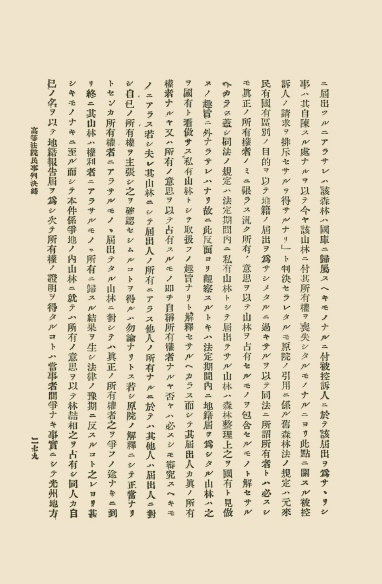 ニ屆出ツルニアラサレハ該森林ハ國庫ニ歸屬スヘキモノナルニ付被控訴人ニ於テ該屆出ヲ爲サヽリシ
事ハ其自陳スル處ナルヲ以テ今ヤ該山林ニ付其所有權ヲ喪失シタルモノナルニヨリ此點ニ關スル被控
訴人ノ請求ヲ排斥セサルヲ得サルナリ」ト判決セラレタルモ原院ノ引用ニ係ル舊森林法ノ規定ハ元來
民有國有區別ノ目的ヲ以テ地籍ノ屆出ヲ爲サシメタルニ過キサルヲ以テ同法ニ所謂所有者トハ必スシ
モ眞正ノ所有權者ノミニ限ラス汎ク所有ノ意思ヲ以テ山林ヲ占有セルモノヲ包含セルモノト解セサル
ヘカラス蓋シ同法ノ規定ハ法定期間内ニ私有山林トシテ屆出テサル山林ハ森林整理上之ヲ國有ト見傚
スノ趣旨ニ外ナラサレハナリ故ニ此反面ヨリ觀察スルトキハ法定期間内ニ地籍屆ヲ爲シタル山林ハ之
ヲ國有ト看傚サス私有山林トシテ取扱フノ趣旨ナリト解釋セサルヘカラス而シテ其屆出人カ眞ノ所有
權者ナルヤ又ハ所有ノ意思ヲ以テ占有スルモノ即チ自稱所有權者ナルヤ否ヤハ必スシモ審究スヘキモ
ノニアラス若シ夫レ其山林ニシテ屆出人ノ所有ニアラス他人ノ所有ナルニ於テハ其他人ハ屆出人ニ對
シ自己ノ所有權ヲ主張シ之ヲ確認セシムルコトヲ得ルハ勿論ナリトス若シ原院ノ解釋ニシテ正當ナリ
トセンカ所有權者ニアラサルモノヽ屆出テタル山林ニ對シテハ眞正ノ所有權者之ヲ爭フノ途ナキニ到
リ終ニ其山林ハ權利者ニアラサルモノヽ所有ニ歸スル結果ヲ生シ法律ノ豫期ニ反スルコト之レヨリ甚
シキモノナキニ至ル而シテ本件係爭地ノ内山林ニ就テハ所有ノ意思ヲ以テ林喆相之ヲ占有シ同人カ自
己ノ名ヲ以テ地籍報告屆ヲ爲シ次テ所有權ノ證明ヲ得タルコトハ當事者間爭ナキ事實ニシテ光州地方
高等法院民事判決錄
二七九